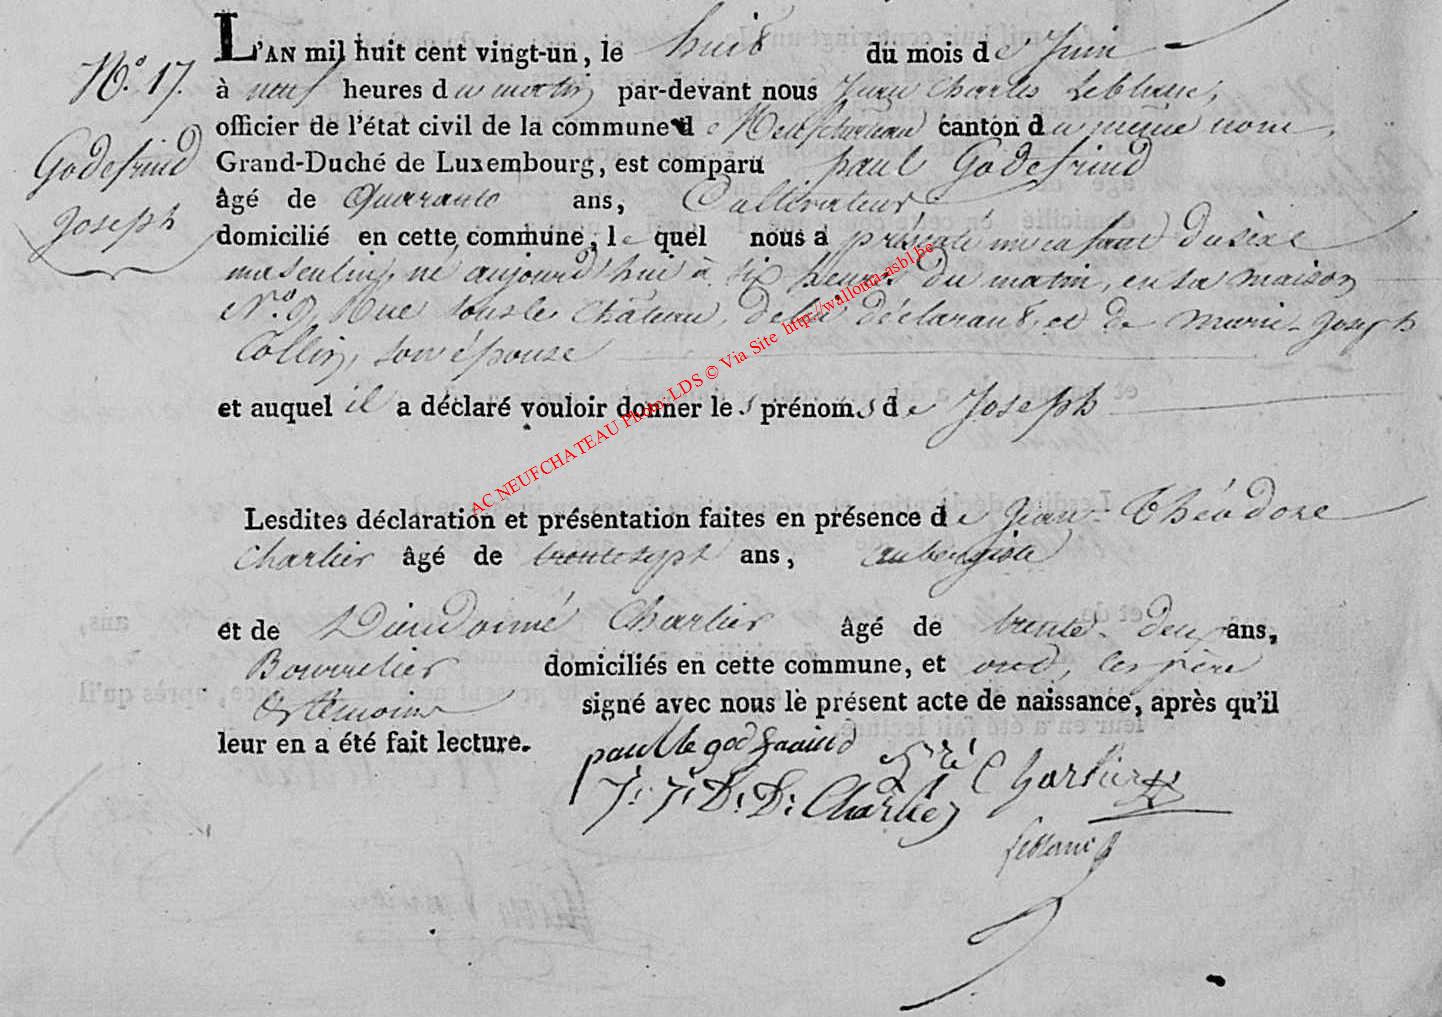 N.° 17.
Godefrind
Joseph
L'AN mil huit cent vingt-un, le huit du mois de Juin
à neuf heures du matin, par-devant nous Jean Charles Leblanc,
officier de l'état civil de la commune de Neufchateau canton du même nom,
Grand-Duché de Luxembourg, est comparu paul Godefrind
âgé de Quarante ans, Cultivateur
domicilié en cette commune, le quel nous a présenté un enfant du sexe
masculin, né aujourd'hui à six heures du matin, en sa maison
N.° 9, Rue sous le Château, de lui déclarant, et de Marie-Joseph
Collin, son épouse
et auquel il a déclaré vouloir donner les prénoms de Joseph
Lesdites déclaration et présentation faites en présence de Jean-Théodore
Charlier âgé de trente sept ans, aubergiste
et de Dieudonné Charlier âgé de trente-deux ans,
Bourrelier domiciliés en cette commune, et ont, les père
et témoins signé avec nous le présent acte de naissance, après qu'il
leur en a été fait lecture.
paul le godfraind
Charlier
J: J: D: D: Charlier
Leblanc
AC NEUFCHATEAU Photo: LDS © Via Site http://walloma-asbl.be